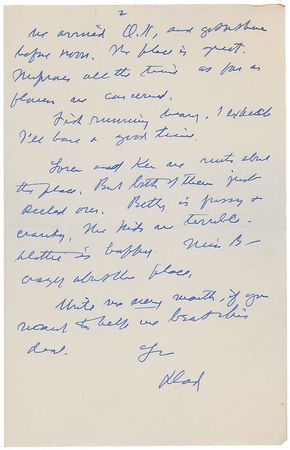 2
We arrived O.K. and got here
before noon. The place is great.
Improves all the time as far as
flowers are concerned.
Fish running heavy. I expect
I'll have a good time.
and Ken are nuts about
the place. But both of them just
over. Betty is fussy &
cranky. The kids are terrible.
is happy. Miss B—
crazy about the place.
Write me every month, if you
want to help me beat this
deal.
Dad